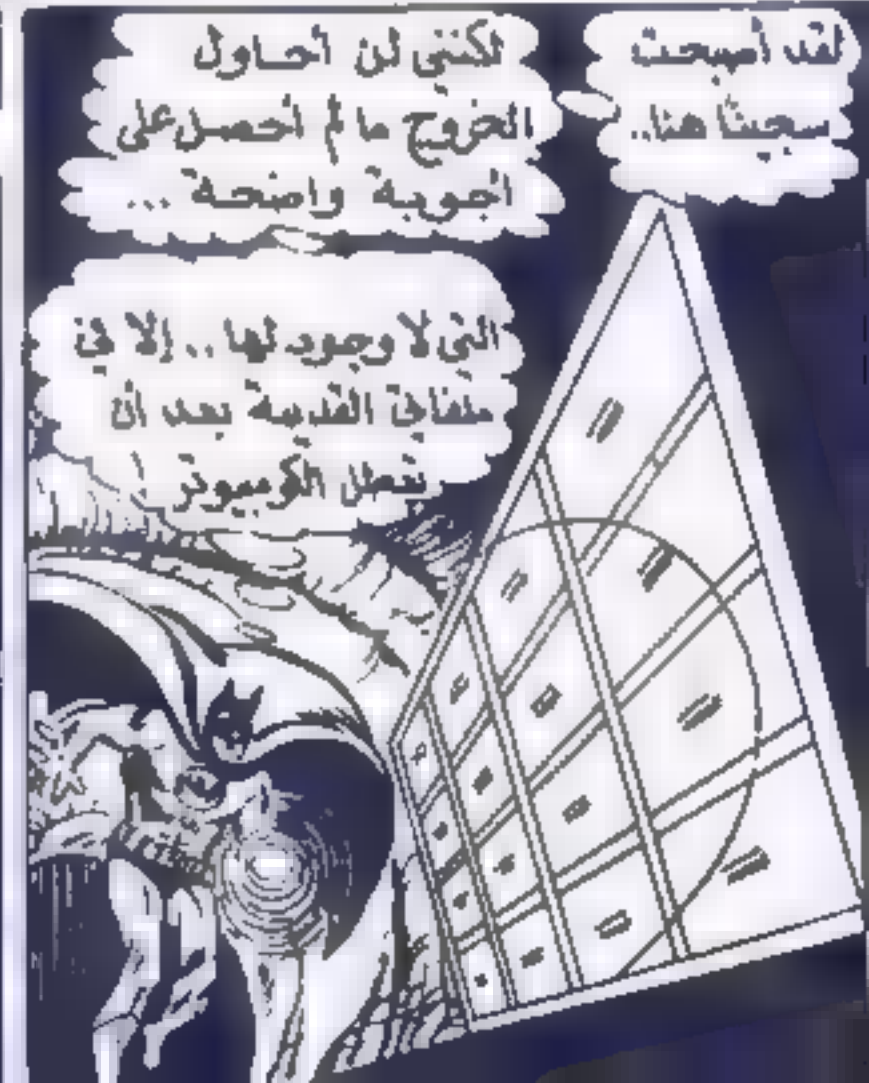 لقد أصبحت
سجينًا هنا..
لكنني لن أحاول
الخروج ما لم أحصل على
أجوبة واضحة ...
التي لا وجود لها .. إلا في
ملفاتي القديمة بعد أن
تعطل الكومبيوتر !